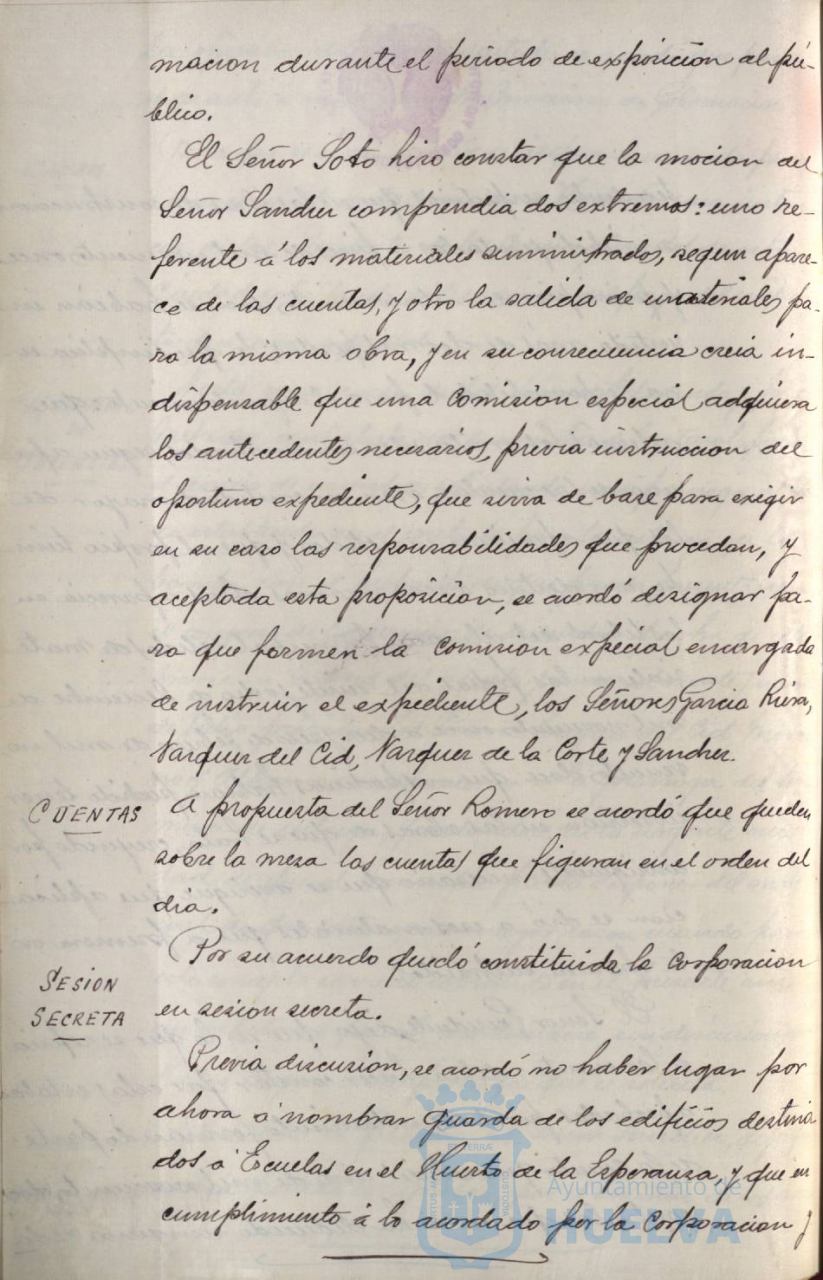 macion durante el periodo de exposicion al pú-
blico.
El Señor Soto hizo constar que la mocion del
Señor Sanchez comprendia dos extremos: uno re-
ferente á los materiales suministrados, segun apare-
ce de las cuentas, y otro la salida de materiales pa-
ra la misma obra, y en su consecuencia creia in-
dispensable que una Comision especial adquiera
los antecedentes necesarios, previa instruccion del
oportuno expediente, que sirva de base para exigir
en su caso las responsabilidades que procedan, y
aceptada esta proposicion, se acordó designar pa-
ra que formen la Comision especial encargada
de instruir el expediente, los Señores Garcia
Vazquez del Cid, Vazquez de la Corte y Sanchez.
CUENTAS
A propuesta del Señor Romero se acordó que queden
sobre la mesa las cuentas que figuran en el orden del
dia.
SESION
SECRETA
Por su acuerdo quedó constituida la Corporacion
en sesion secreta.
Previa discusion, se acordó no haber lugar por
ahora á nombrar guarda de los edificios destina
dos á Escuelas en el Huerto de la Esperanza, y que en
cumplimiento á lo acordado por la Corporacion y
Ayuntamiento de
HUELVA